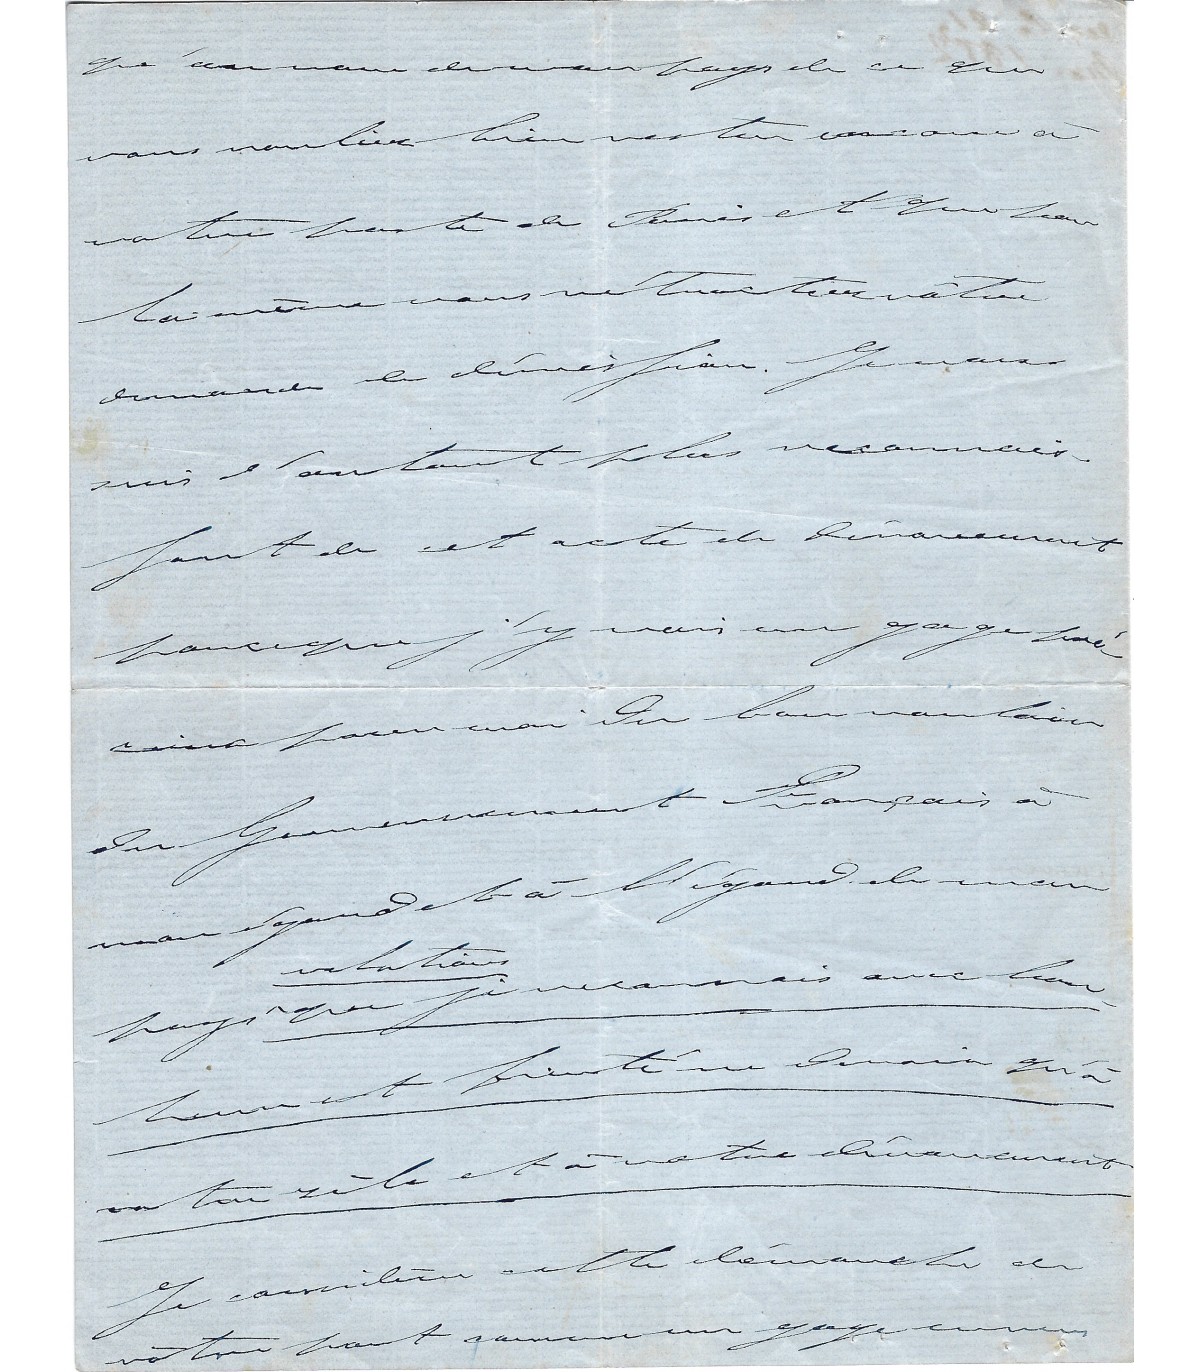 qu'au nom de mon pays de ce que
vous vouliez bien rester encore à
votre poste de Paris et que par
là-même vous rétractiez vôtre
demande de démission. Je vous
suis d'autant plus reconnais-
sant de cet acte de dévouement
parceque j'y vois un gage pré
cieux pour moi du bon vouloir
du Gouvernement Français à
mon égard et à l'égard de mon
relations
pays que je reconnais avec bon-
heur et fierté ne devoir qu'à
votre zèle et à votre dévouement
Je considère cette démarche de
vôtre part comme un gage envers